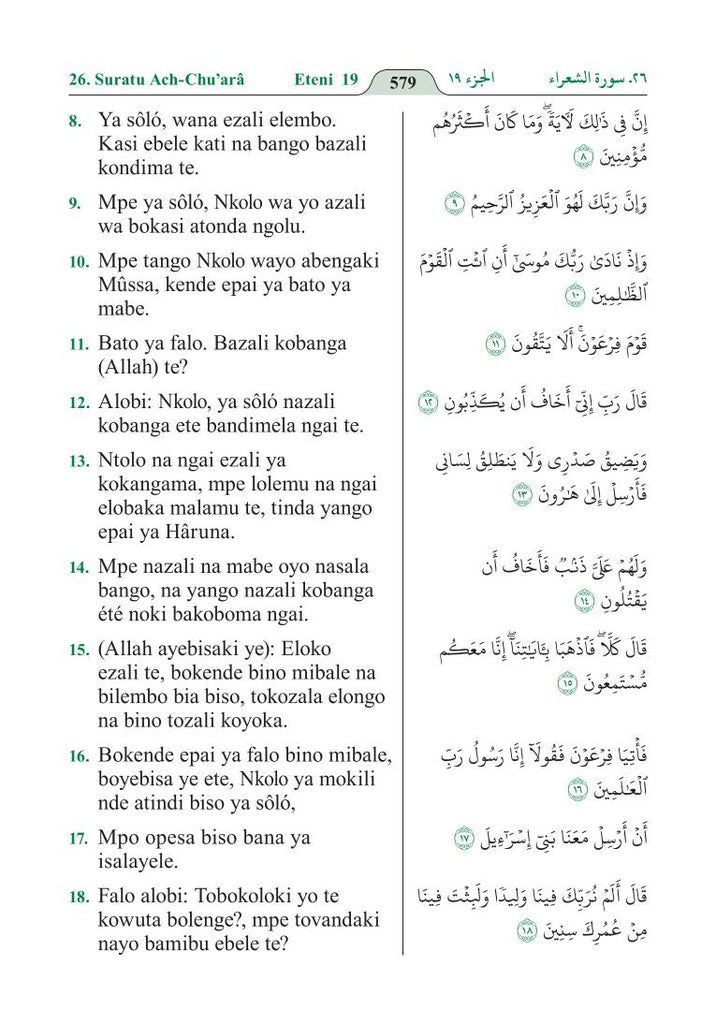 26. Suratu Ach-Chu’arâ Eteni 19 579 الجزء ١٩ ٢٦. سورة الشعراء
8. Ya sôló, wana ezali elembo.
Kasi ebele kati na bango bazali
kondima te.
إِنَّ فِي ذَٰلِكَ لَأٓيَةٗۖ وَمَا كَانَ أَكۡثَرُهُم
مُّؤۡمِنِينَ ٨
9. Mpe ya sôló, Nkolo wa yo azali
wa bokasi atonda ngolu.
وَإِنَّ رَبَّكَ لَهُوَ ٱلۡعَزِيزُ ٱلرَّحِيمُ ٩
10. Mpe tango Nkolo wayo abengaki
Mûssa, kende epai ya bato ya
mabe.
وَإِذۡ نَادَىٰ رَبُّكَ مُوسَىٰٓ أَنِ ٱئۡتِ ٱلۡقَوۡمَ
ٱلظَّٰلِمِينَ ١٠
11. Bato ya falo. Bazali kobanga
(Allah) te?
قَوۡمَ فِرۡعَوۡنَۚ أَلَا يَتَّقُونَ ١١
12. Alobi: Nkolo, ya sôló nazali
kobanga ete bandimela ngai te.
قَالَ رَبِّ إِنِّيٓ أَخَافُ أَن يُكَذِّبُونِ ١٢
13. Ntolo na ngai ezali ya
kokangama, mpe lolemu na ngai
elobaka malamu te, tinda yango
epai ya Hâruna.
وَيَضِيقُ صَدۡرِي وَلَا يَنطَلِقُ لِسَانِي
فَأَرۡسِلۡ إِلَىٰ هَٰرُونَ ١٣
14. Mpe nazali na mabe oyo nasala
bango, na yango nazali kobanga
été noki bakoboma ngai.
وَلَهُمۡ عَلَيَّ ذَنۢبٞ فَأَخَافُ أَن
يَقۡتُلُونِ ١٤
15. (Allah ayebisaki ye): Eloko
ezali te, bokende bino mibale na
bilembo bia biso, tokozala elongo
na bino tozali koyoka.
قَالَ كَلَّاۖ فَٱذۡهَبَا بِـَٔايَٰتِنَآۖ إِنَّا مَعَكُم
مُّسۡتَمِعُونَ ١٥
16. Bokende epai ya falo bino mibale,
boyebisa ye ete, Nkolo ya mokili
nde atindi biso ya sôló,
فَأۡتِيَا فِرۡعَوۡنَ فَقُولَآ إِنَّا رَسُولُ رَبِّ
ٱلۡعَٰلَمِينَ ١٦
17. Mpo opesa biso bana ya
isalayele.
أَنۡ أَرۡسِلۡ مَعَنَا بَنِيٓ إِسۡرَٰٓءِيلَ ١٧
18. Falo alobi: Tobokoloki yo te
kowuta bolenge?, mpe tovandaki
nayo bamibu ebele te?
قَالَ أَلَمۡ نُرَبِّكَ فِينَا وَلِيدٗا وَلَبِثۡتَ فِينَا
مِنۡ عُمُرِكَ سِنِينَ ١٨